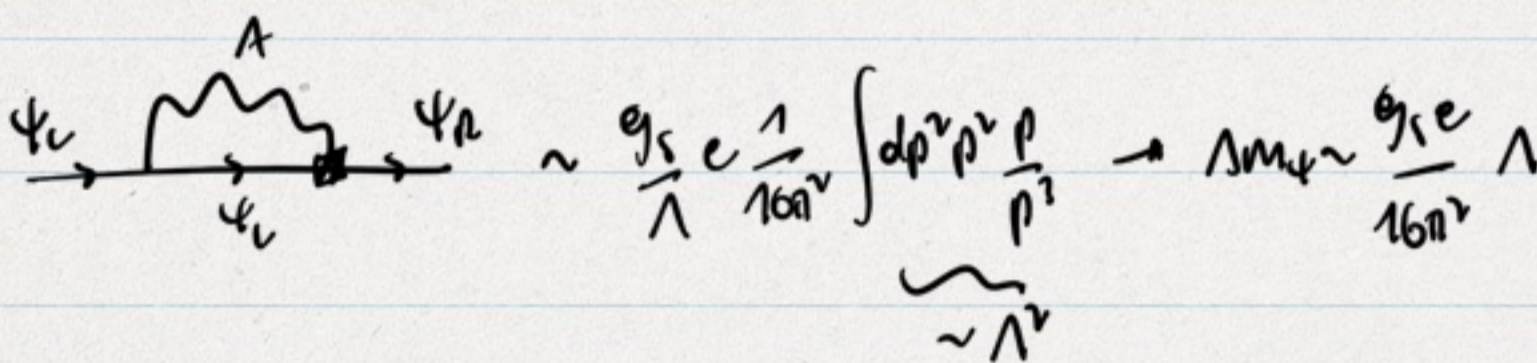 A
ψ_L ψ_R ~ g_5/Λ e 1/16π² ∫dp² p² p/p³ → Δm_ψ ~ g_5 e/16π² Λ
ψ_L
~ Λ²